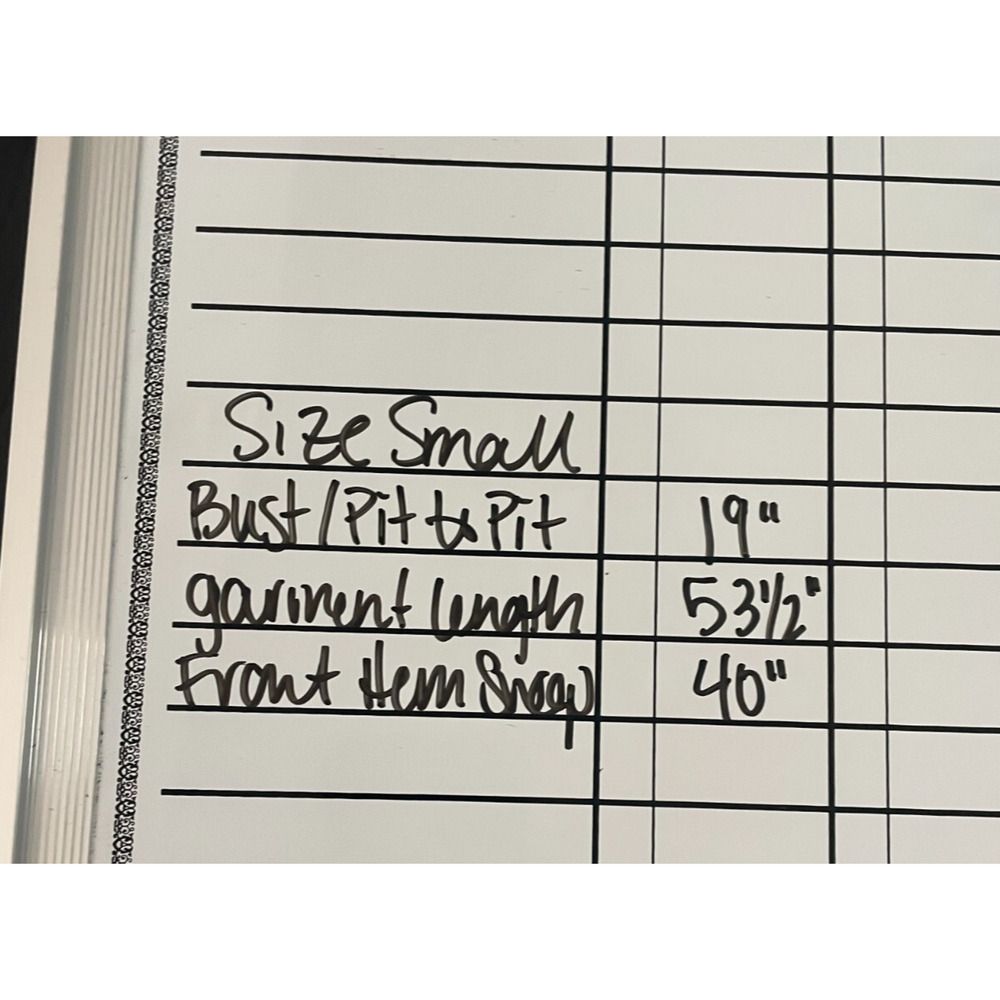 Size Small
Bust/Pit to Pit 19"
garment length 53 1/2"
Front Hem 40"